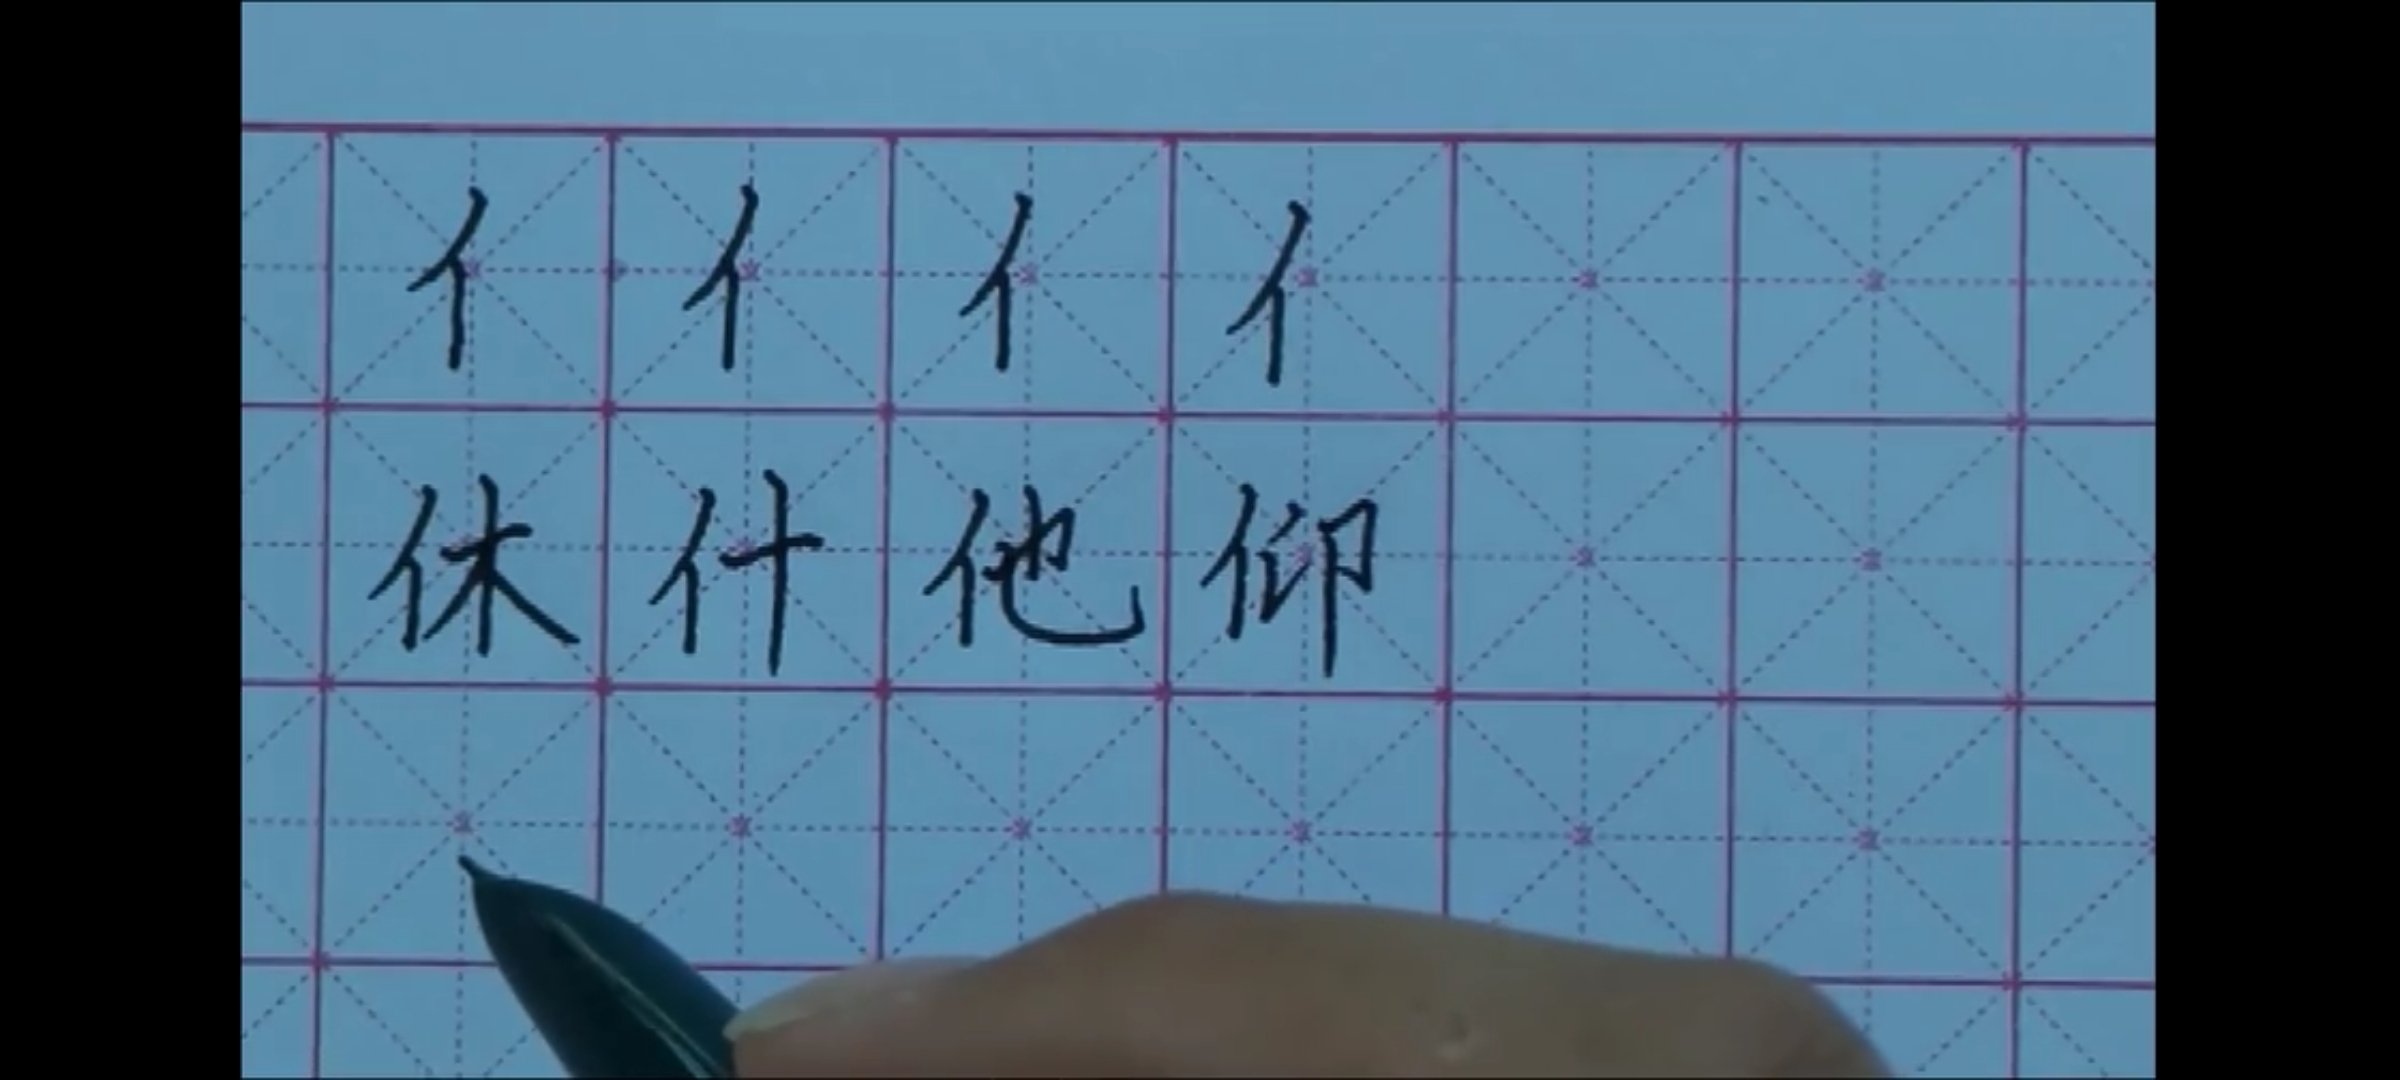 亻亻亻亻
休什他仰